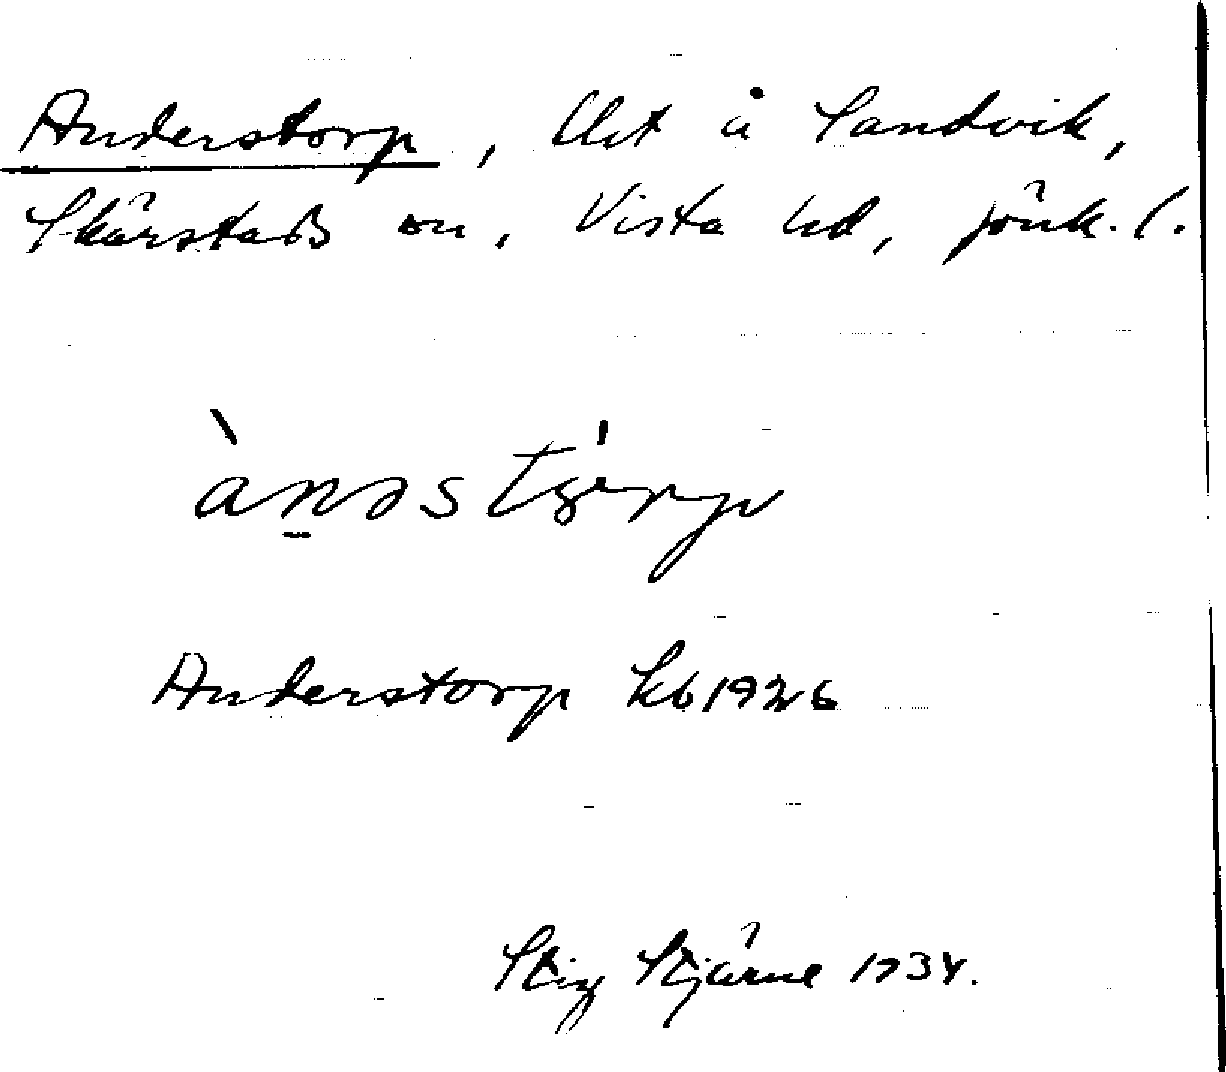 Anderstorp, Lht å Sandvik,
Skärstads sn, Vista hd, Jönk. l.
ànəstórp
Anderstorp kb 1926
Stig Stjärne 1934.